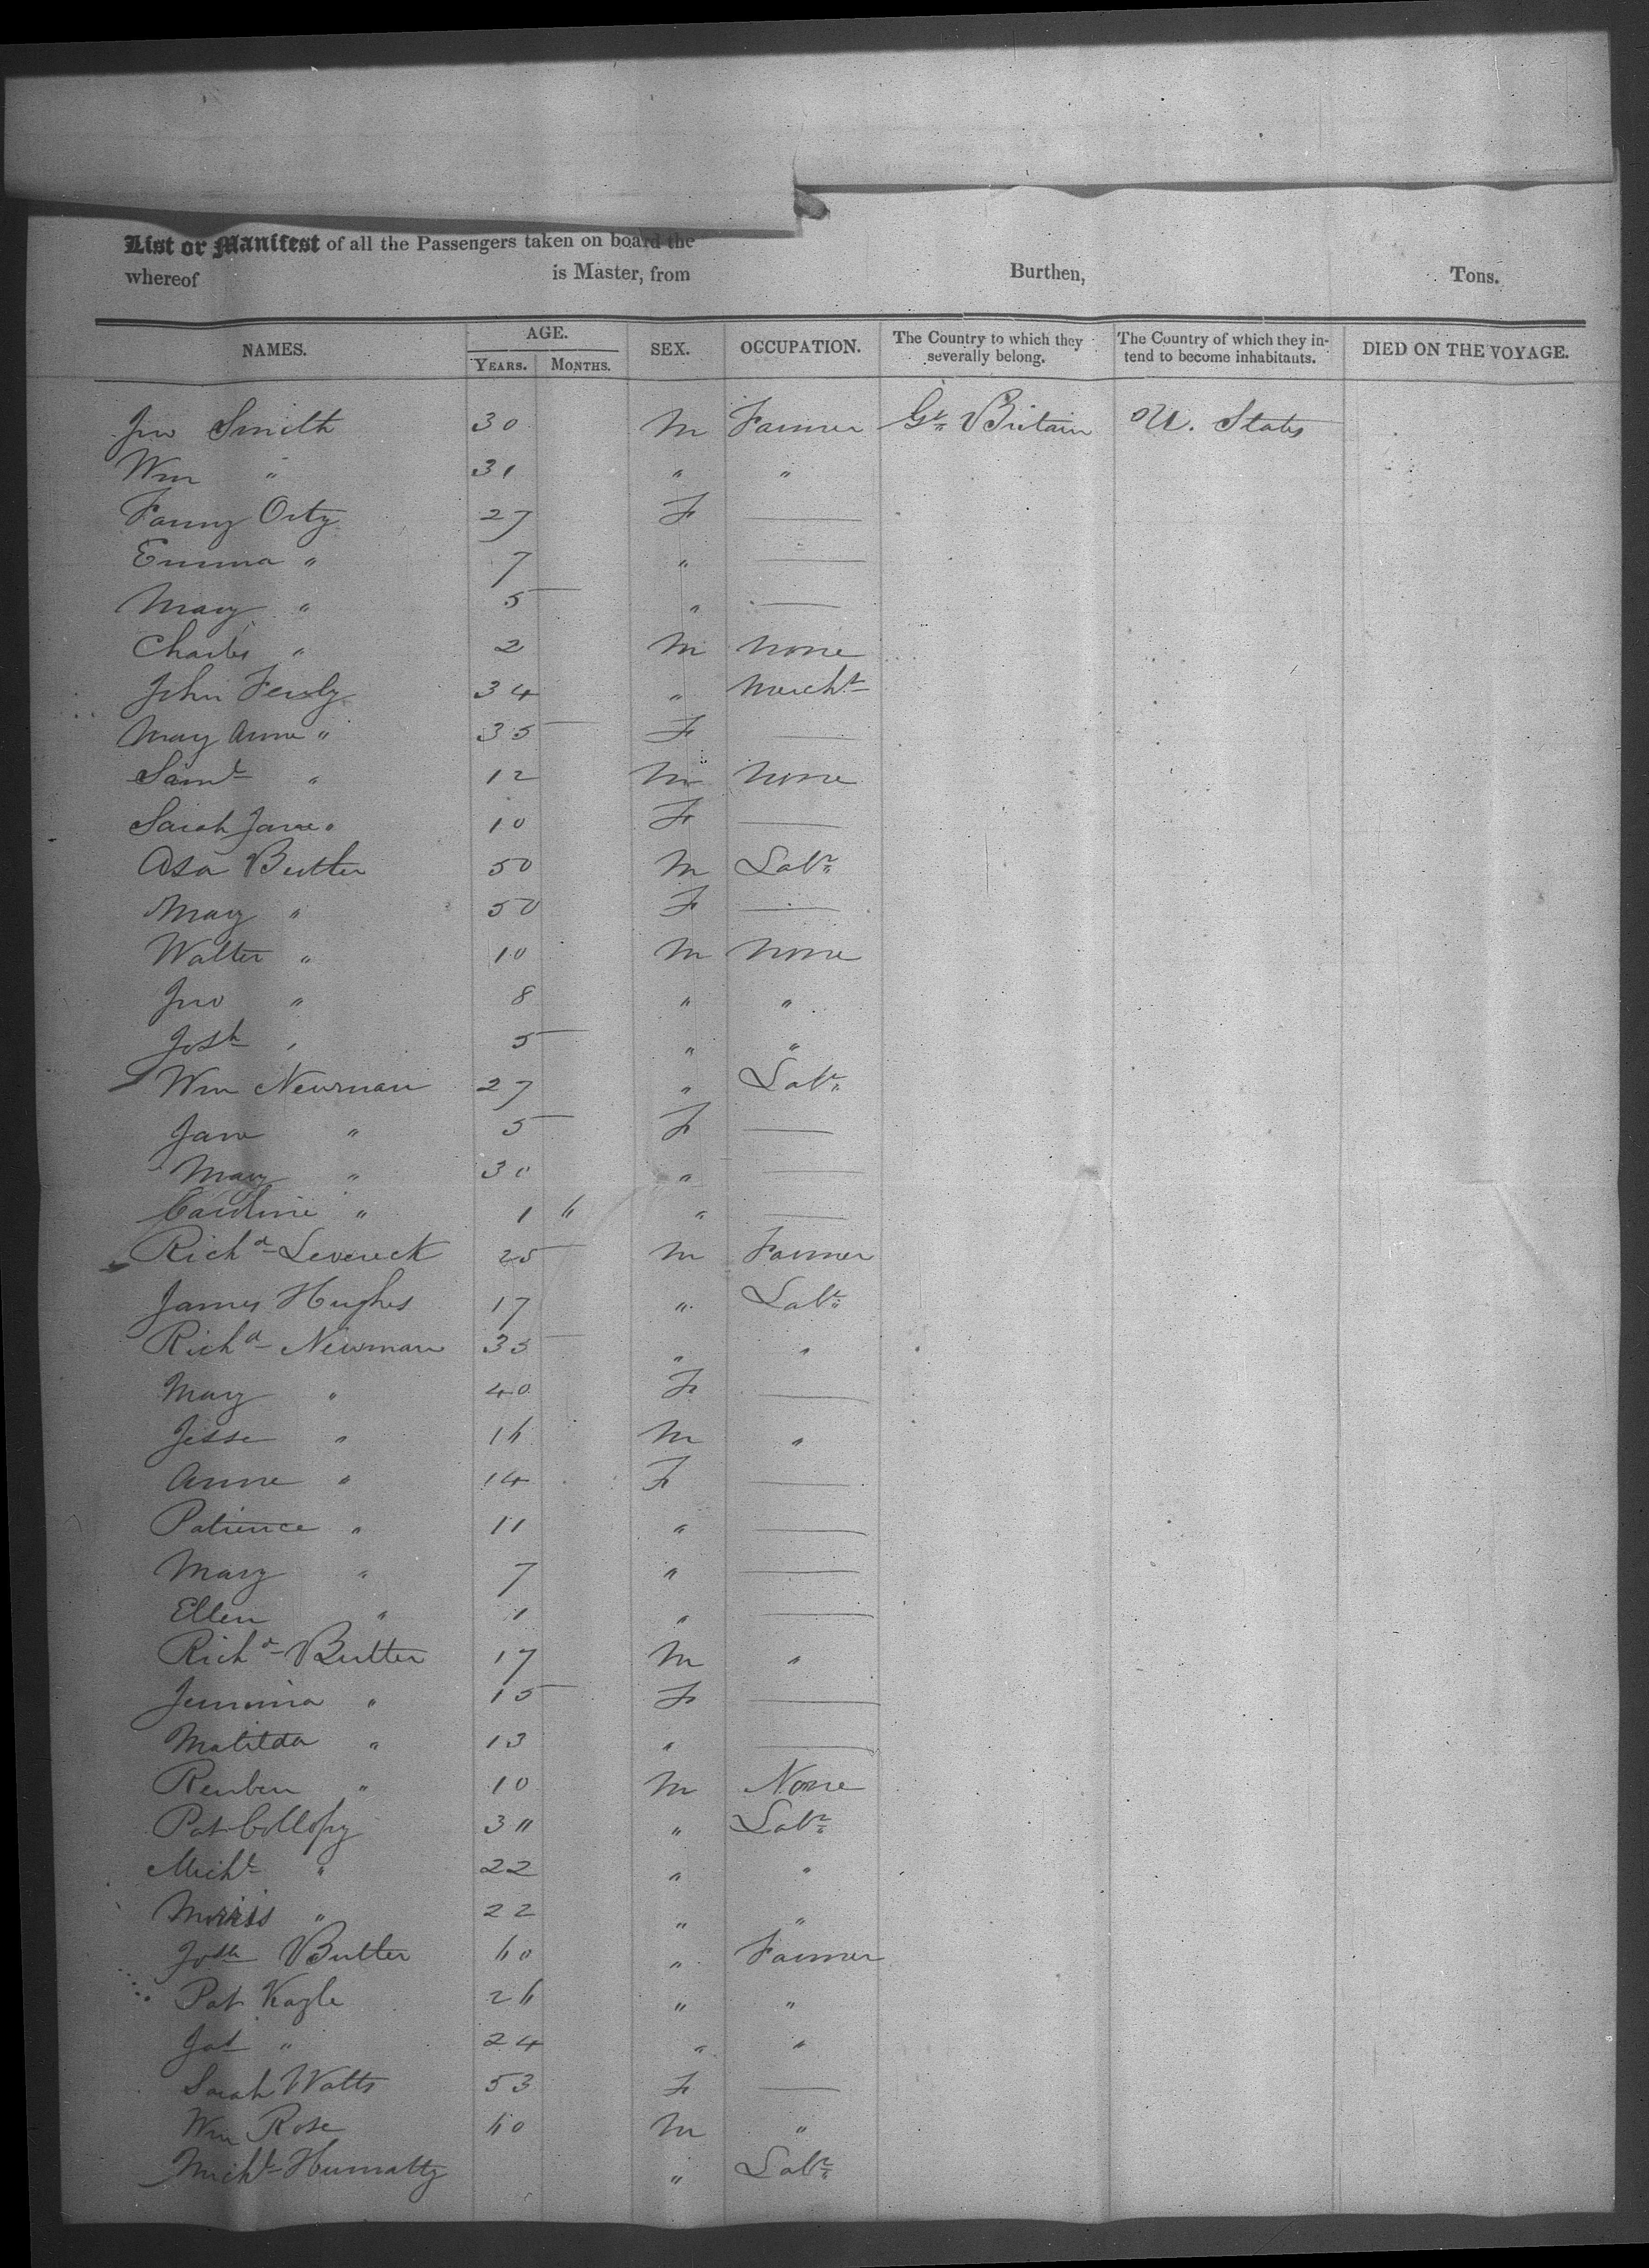 List or Manifest of all the Passengers taken on board the
whereof is Master, from Burthen, Tons.
NAMES. AGE. YEARS. MONTHS. SEX. OCCUPATION. The Country to which they severally belong. The Country of which they intend to become inhabitants. DIED ON THE VOYAGE.
Jno Smith 30 M Farmer Gt. Britain U. States
Wm " 31 " "
Fanny Orty 27 F —
Emma " 7 " —
Mary " 5 " —
Charles " 2 M None
John 34 " Mercht
Mary Anne " 35 F —
Saml " 12 M None
Sarah Jane " 10 F —
Asa Butler 50 M Labr
Mary " 50 F —
Walter " 10 M None
Jno " 8 " "
Josh " 5 " "
Wm Newman 27 " Labr
Jane " 5 F —
Mary " 30 " —
Caroline " 1 " —
Richd Levereck 25 M Farmer
James Hughes 17 " Labr
Richd Newman 35 " "
Mary " 40 F —
Jesse " 16 M "
Anne " 14 F —
Patience " 11 " —
Mary " 7 " —
Ellen " 1 " —
Richd Butler 17 M "
Jemima " 15 F —
Matilda " 13 " —
Reuben " 10 M None
Pat Collopy " Labr
Michl " 22 " "
Morris " 22 " "
Josh Butler 60 " Farmer
Pat Kagle 26 " "
" 24 " "
Sarah Watts 53 F —
Wm Rose 60 M "
Michl " Labr